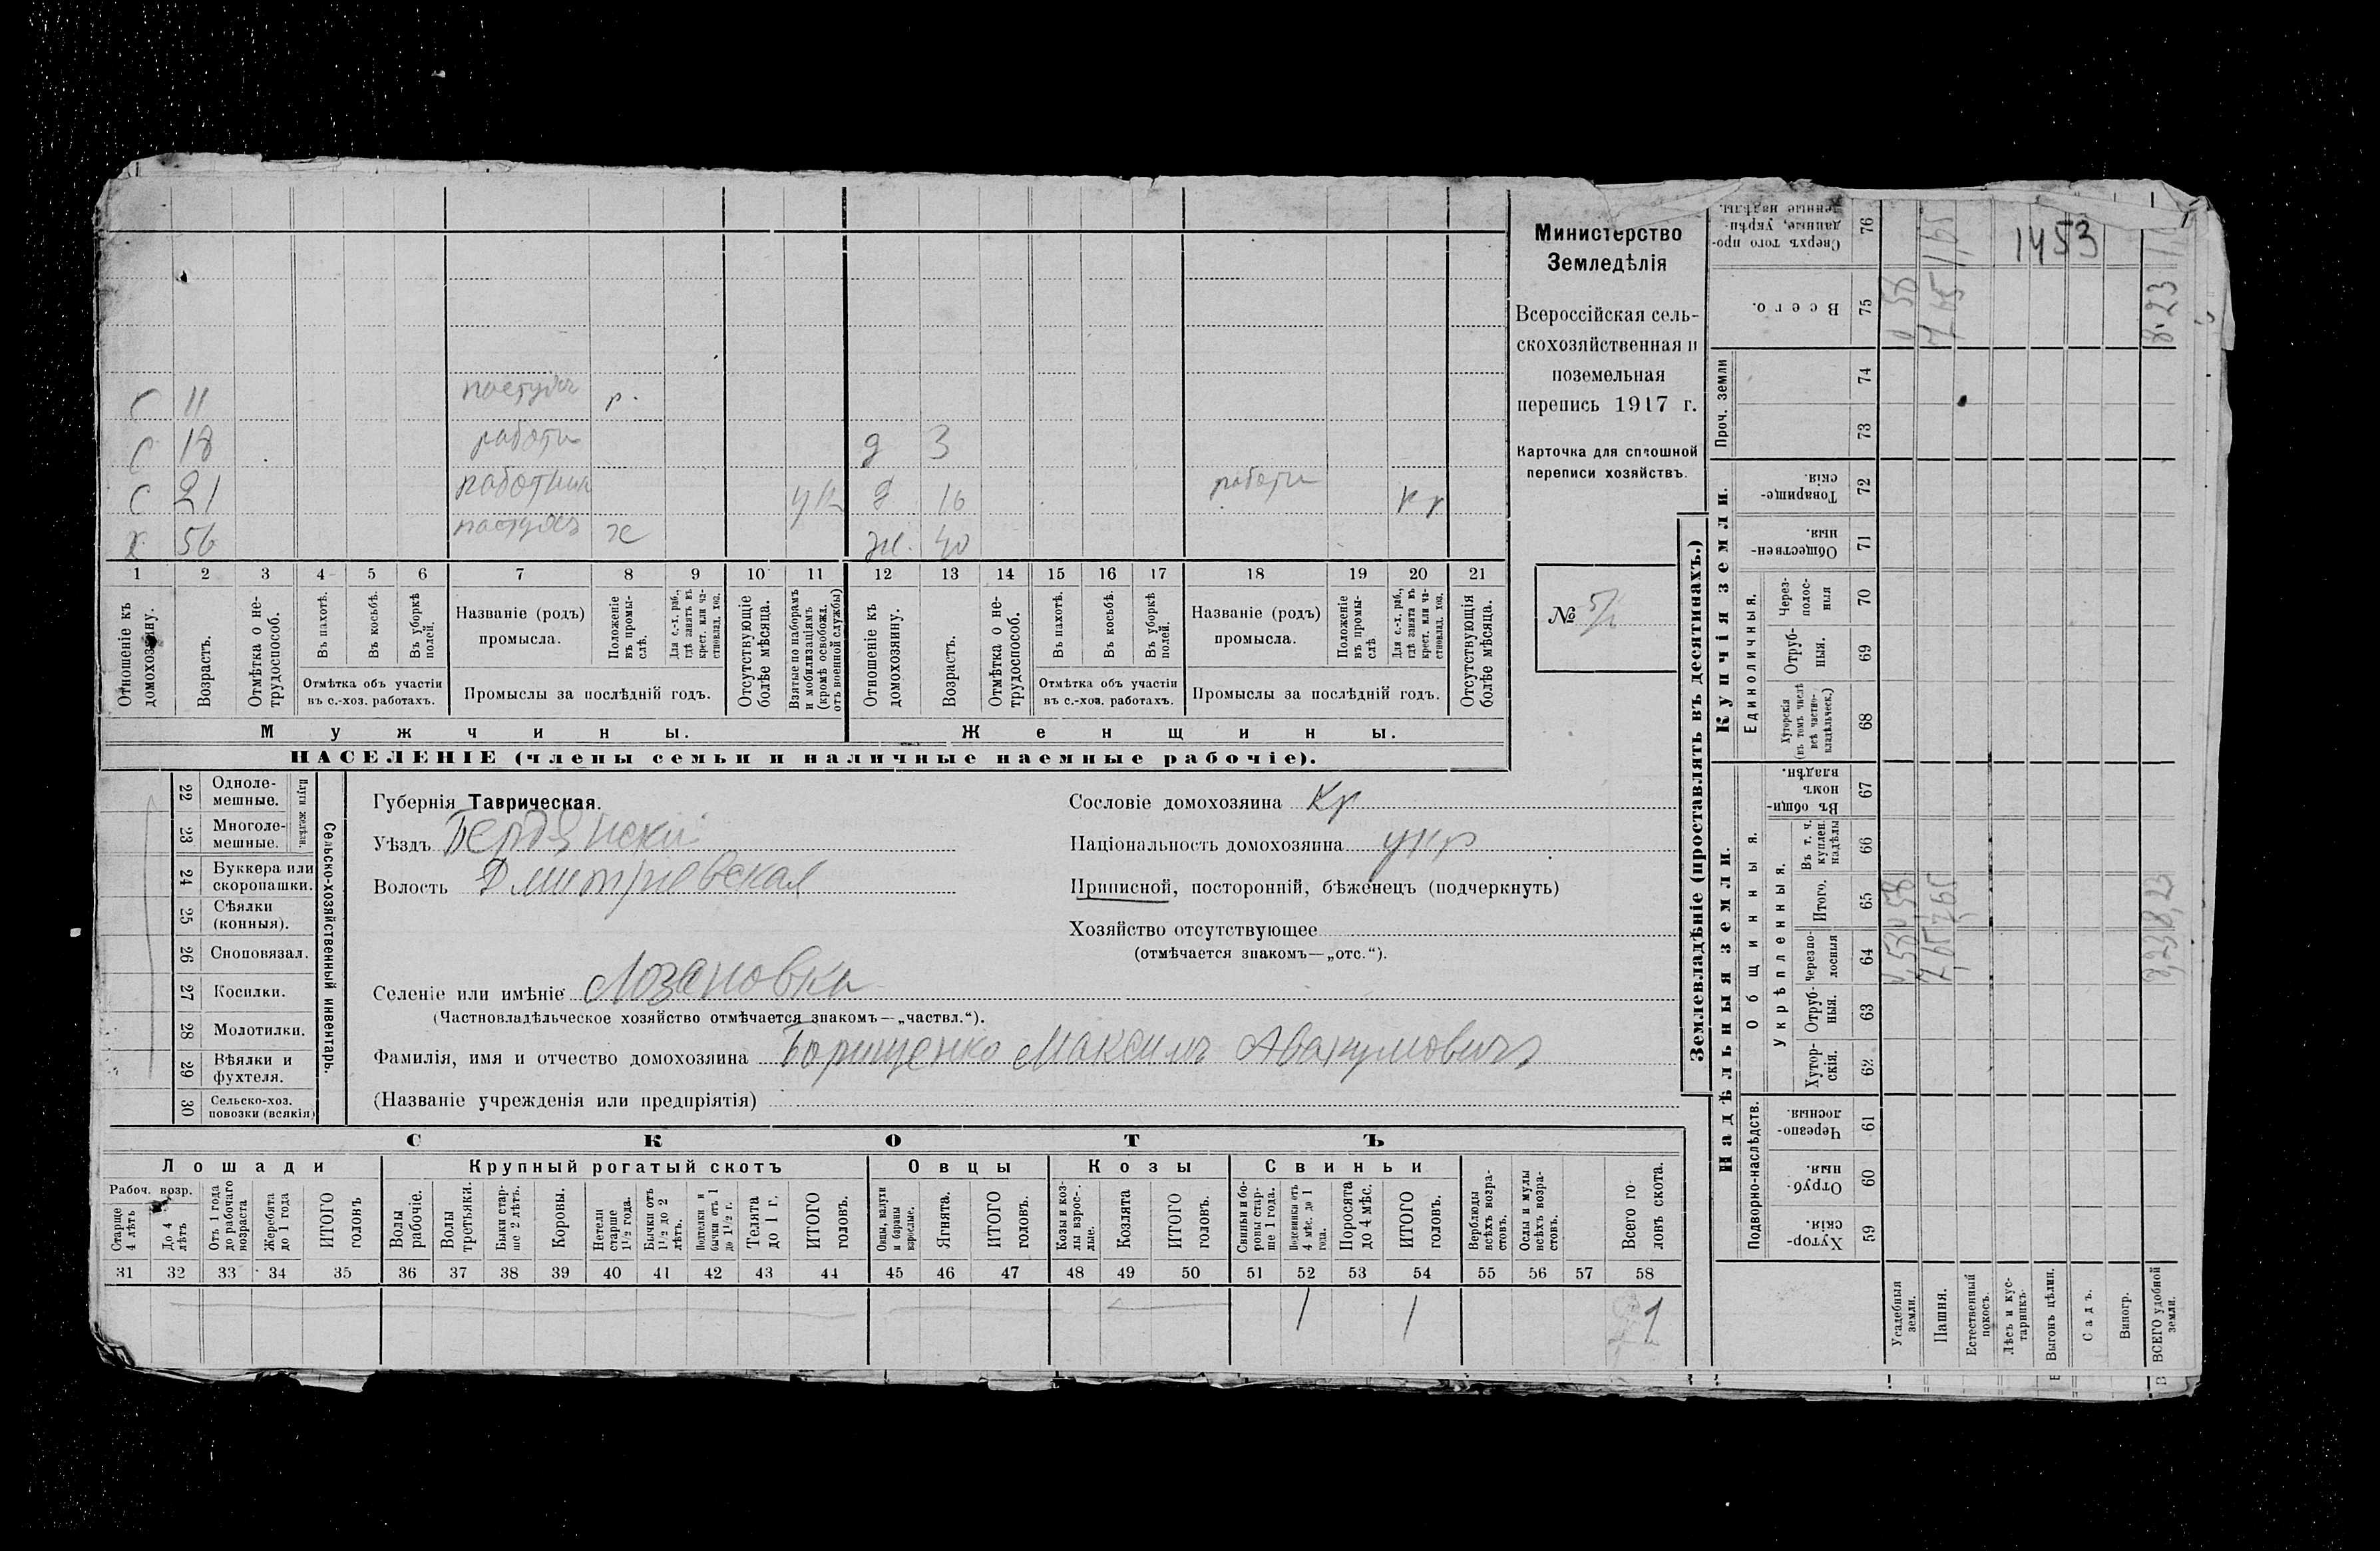 Министерство
Земледѣлія
Всероссійская сель-
скохозяйственная и
поземельная
перепись 1917 г.
Карточка для сплошной
переписи хозяйствъ.
№
1453
С 11 пастухъ р.
С 18 работн д 3
С 21 работник ук д 16 работн кр
х 56 пастухъ х жн. 40
1 2 3 4 5 6 7 8 9 10 11 12 13 14 15 16 17 18 19 20 21
Отношеніе къ домохозяину.
Возрастъ.
Отмѣтка о не-трудоспособ.
Въ пахотѣ.
Въ косьбѣ.
Въ уборкѣ полей.
Отмѣтка объ участіи
въ с.-хоз. работахъ.
Названіе (родъ)
промысла.
Положеніе въ промы-слѣ.
Для с.-х. раб., гдѣ занятъ въ крест. или ча-стновлад. хоз.
Промыслы за послѣдній годъ.
Отсутствующіе болѣе мѣсяца.
Взятые по наборамъ и мобилизаціямъ (кромѣ освобожд. отъ военной службы)
Отношеніе къ домохозяину.
Возрастъ.
Отмѣтка о не-трудоспособ.
Въ пахотѣ.
Въ косьбѣ.
Въ уборкѣ полей.
Отмѣтка объ участіи
въ с.-хоз. работахъ.
Названіе (родъ)
промысла.
Положеніе въ промы-слѣ
Для с.-х. раб., гдѣ занята въ крест. или ча-стновлад. хоз.
Промыслы за послѣдній годъ.
Отсутствующія болѣе мѣсяца.
Мужчины.
Женщины.
НАСЕЛЕНІЕ (члены семьи и наличные наемные рабочіе).
22 Одноле-мешные.
23 Многоле-мешные.
Плуги желѣзн.
24 Буккера или скоропашки.
25 Сѣялки (конныя).
26 Сноповязал.
27 Косилки.
28 Молотилки.
29 Вѣялки и фухтеля.
30 Сельско-хоз. повозки (всякія)
Сельско-хозяйственный инвентарь.
Губернія Таврическая.
Уѣздъ Бердянскій
Волость Дмитріевская
Сословіе домохозяина Кр
Національность домохозяина укр
Приписной, посторонній, бѣженецъ (подчеркнуть)
Хозяйство отсутствующее
(отмѣчается знакомъ—„отс.“).
Селеніе или имѣніе Лозановка
(Частновладѣльческое хозяйство отмѣчается знакомъ—„частвл.“).
Фамилія, имя и отчество домохозяина Борищенко Максимъ Авакумовичъ
(Названіе учрежденія или предпріятія)
СКОТЪ
Лошади
Крупный рогатый скотъ
Овцы
Козы
Свиньи
Рабоч. возр.
Старше 4 лѣтъ
До 4 лѣтъ
Отъ 1 года до рабочаго возраста
Жеребята до 1 года
ИТОГО головъ
Волы рабочіе.
Волы третьяки.
Быки стар-ше 2 лѣтъ.
Коровы.
Нетели старше 1½ года.
Бычки отъ 1½ до 2 лѣтъ.
Подтелки и бычки отъ 1 до 1½ г.
Телята до 1 г.
ИТОГО головъ.
Овцы, валухи и бараны взрослые.
Ягнята.
ИТОГО головъ.
Козы и коз-лы взрос-лые.
Козлята
ИТОГО головъ.
Свиньи и бо-ровы стар-ше 1 года.
Подсвинки отъ 4 мѣс. до 1 года.
Поросята до 4 мѣс.
ИТОГО головъ.
Верблюды всѣхъ возра-стовъ.
Ослы и мулы всѣхъ возра-стовъ.
Всего го-ловъ скота.
31 32 33 34 35 36 37 38 39 40 41 42 43 44 45 46 47 48 49 50 51 52 53 54 55 56 57 58
1 1 1
Землевладѣніе (проставлять въ десятинахъ.)
Надѣльныя земли.
Купчія земли.
Проч. земли
Подворно-наслѣдств.
Общинныя.
Укрѣпленныя.
Единоличныя.
Хутор-скія. 59
Отруб-ныя. 60
Черезпо-лосныя. 61
Хутор-скія. 62
Отруб-ныя. 63
Черезпо-лосныя 64
Итого. 65
Въ т. ч. куплен. надѣлы 66
Въ общи-номъ владѣн. 67
Хуторскія (въ томъ числѣ всѣ частно-владѣльческ.) 68
Отруб-ныя. 69
Через-полос-ныя 70
Обществен-ныя. 71
Товарище-скія. 72
73
74
Всего. 75
Сверхъ того про-данные, укрѣп-ленные надѣлы. 76
Усадебныя земли. 0,58 0,58 0,58
Пашня. 7,65 7,65 7,65
Естественный покосъ.
Лѣсъ и кус-тарникъ.
Выгонъ цѣлин.
Садъ.
Виногр.
ВСЕГО удобной земли. 8,23 8,23 8,23